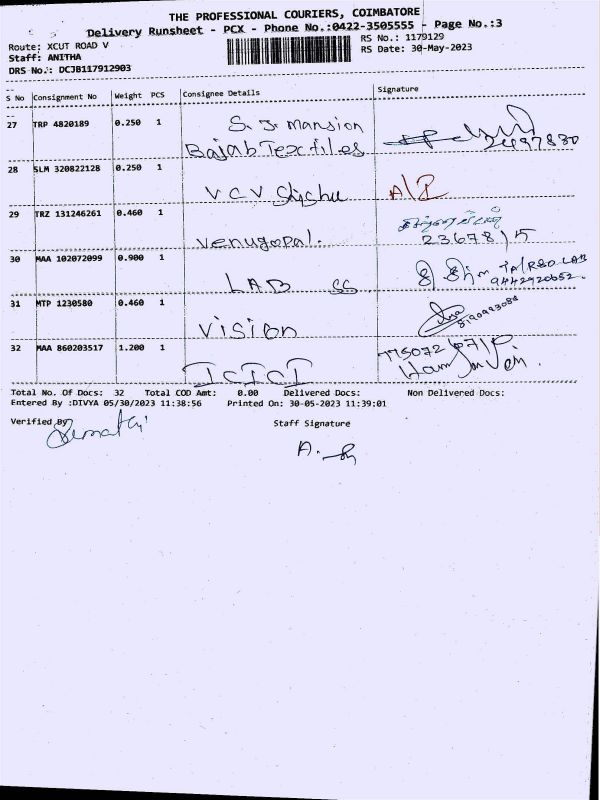 THE PROFESSIONAL COURIERS, COIMBATORE
Delivery Runsheet - PCX - Phone No.:0422-3505555 - Page No.:3
Route: XCUT ROAD V
RS No.: 1179129
Staff: ANITHA
RS Date: 30-May-2023
DRS No.: DCJB117912903
S No Consignment No Weight PCS Consignee Details Signature
27 TRP 4820189 0.250 1 S. J. Mansion
Bajab Textiles
28 SLM 320822128 0.250 1
V C V Shishu
29 TRZ 131246261 0.460 1
Venugopal. 2367815
30 MAA 102072099 0.900 1
LAB SS
TA/R&D LAB
9442920652.
31 MTP 1230580 0.460 1
Vision
32 MAA 860203517 1.200 1
ICICI
Total No. Of Docs: 32 Total COD Amt: 0.00 Delivered Docs: Non Delivered Docs:
Entered By :DIVYA 05/30/2023 11:38:56 Printed On: 30-05-2023 11:39:01
Verified By Staff Signature